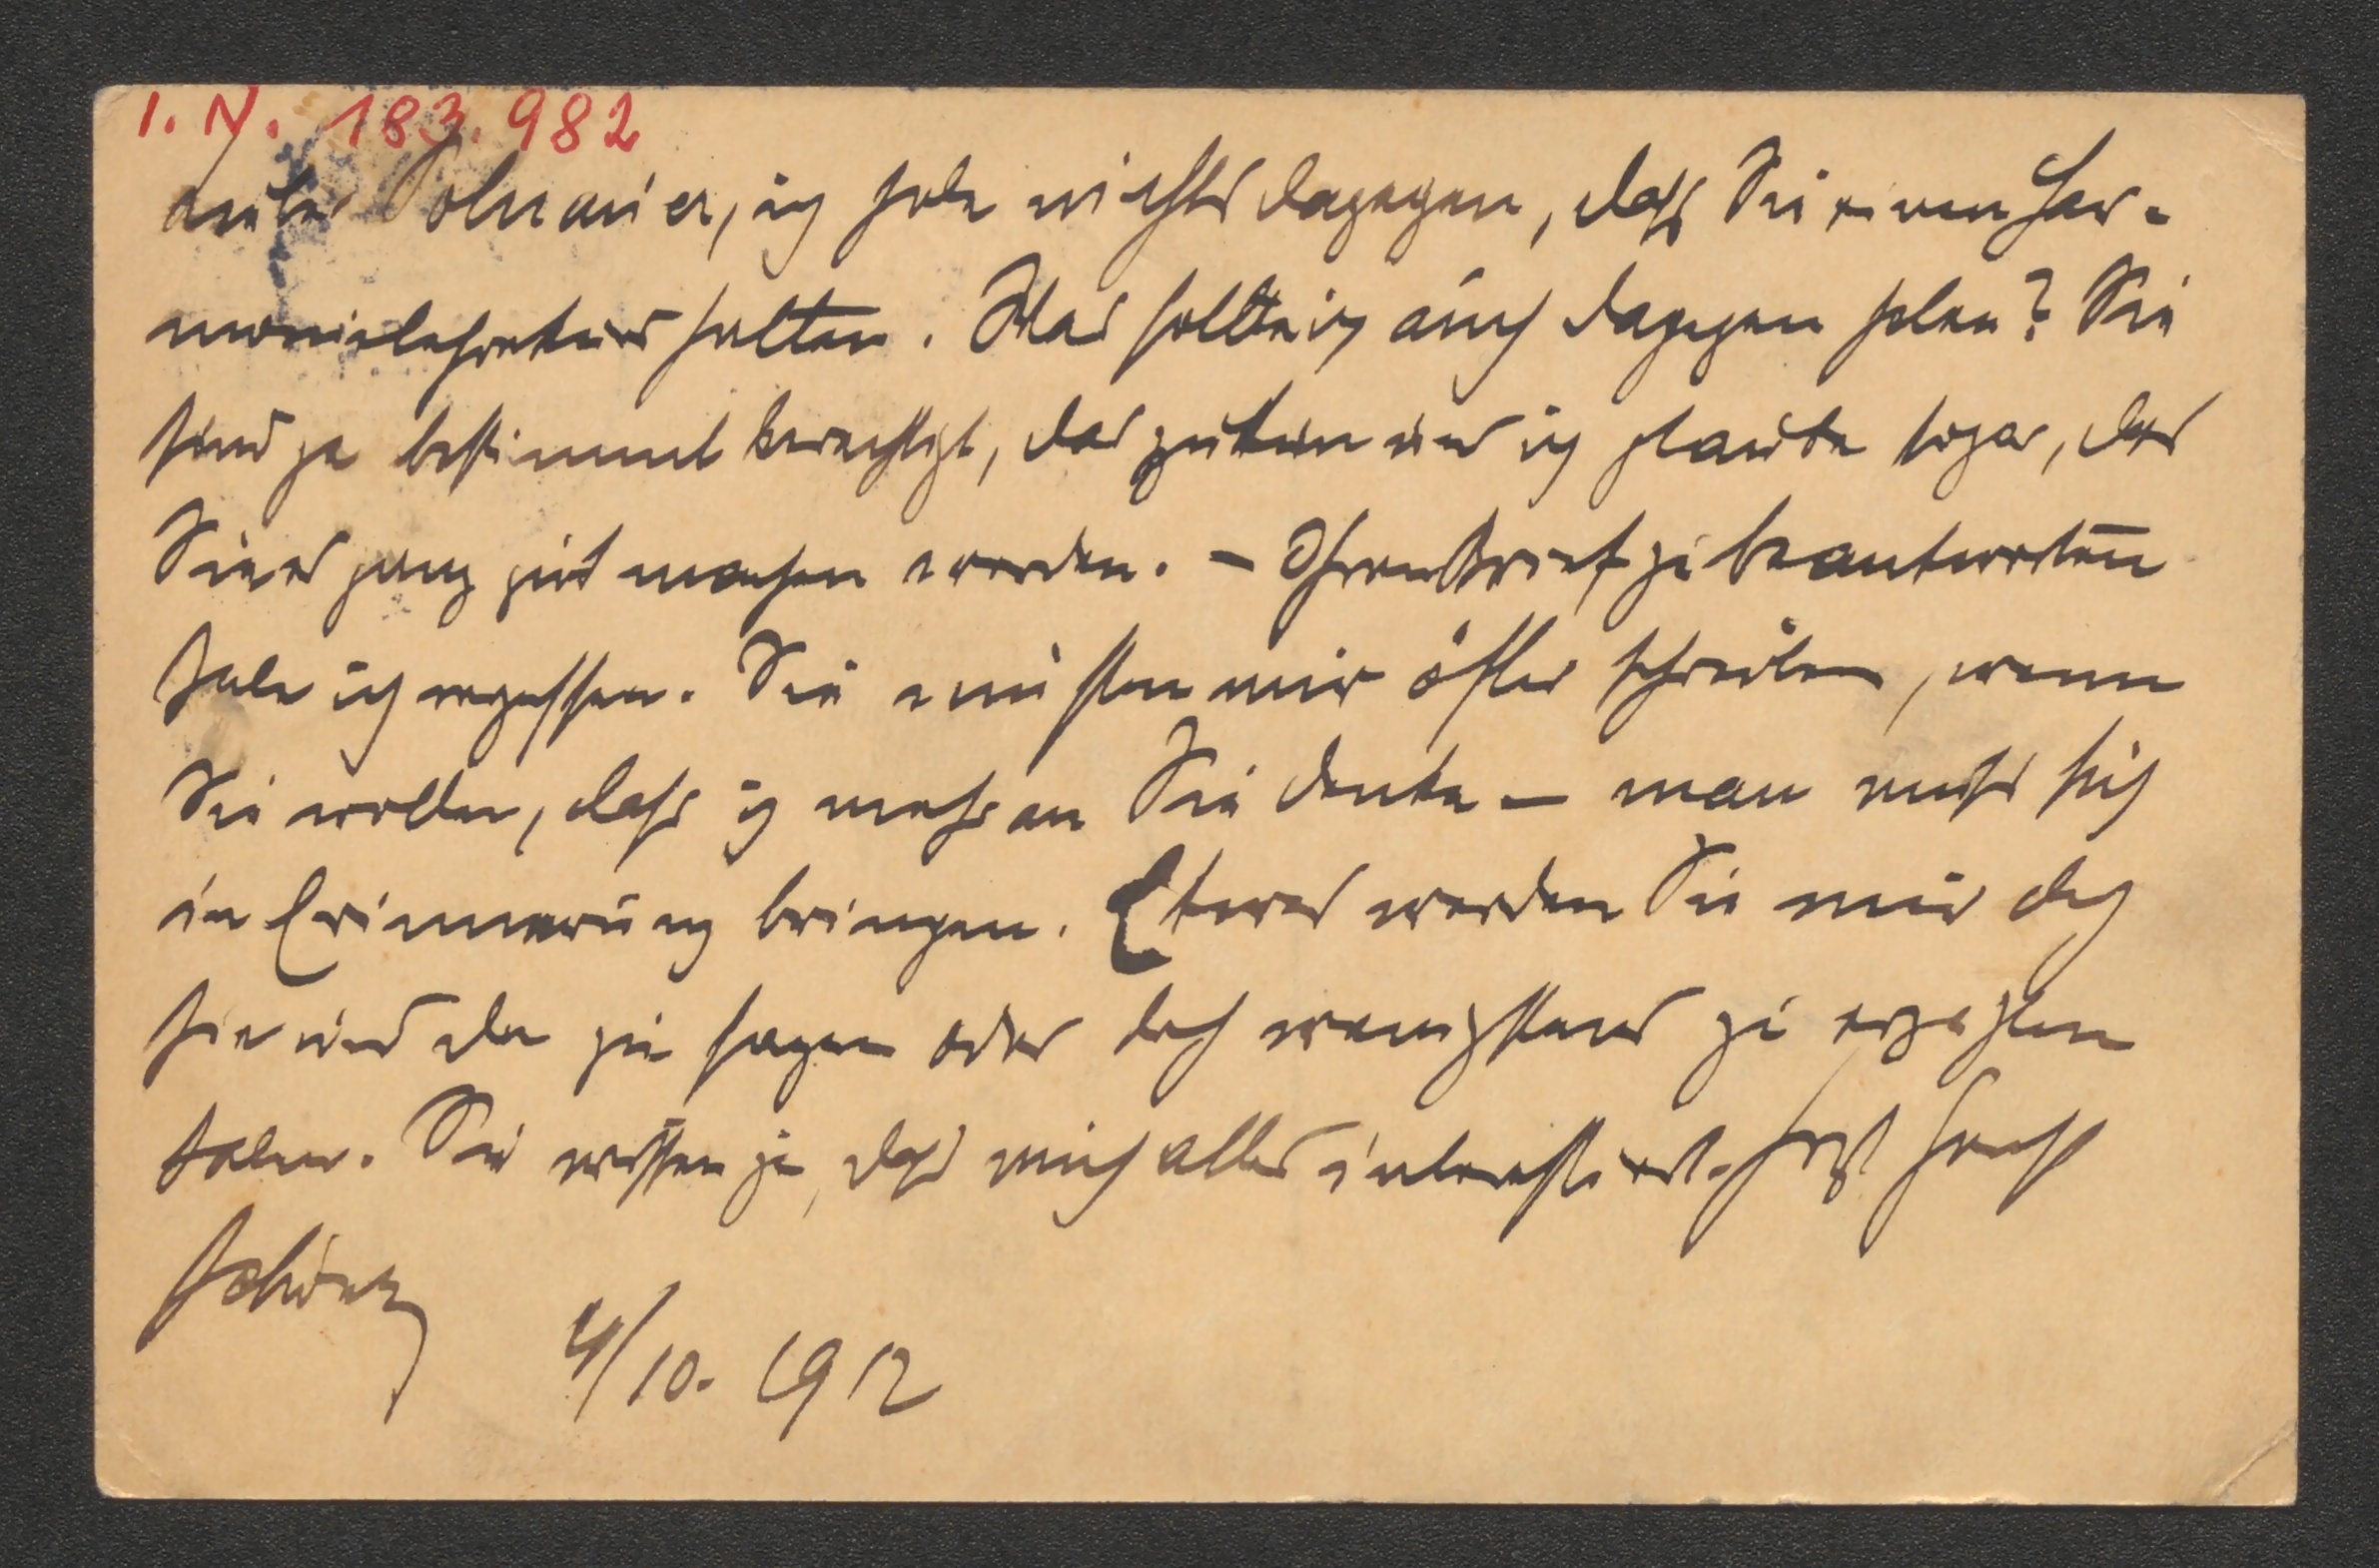 I. N. 183.982
Lieber Polnauer, ich habe nichts dagegen, dass Sie einen Har-
monielehrekurs halten. Was sollte ich auch dagegen haben? Sie
sind ja bestimmt berechtigt, das zu tun und ich glaube sogar, dass
Sie es ganz gut machen werden. – Ihren Brief zu beantworten
habe ich vergessen. Sie müssten mir öfter schreiben, wenn
Sie wollen, dass ich mehr an Sie denke – man muss sich
in Erinnerung bringen. Etwas werden Sie mir doch
hie und da zu sagen oder doch wenigstens zu erzählen
haben. Sie wissen ja, dass mich alles interessiert.
Schönberg 4/10. 1912